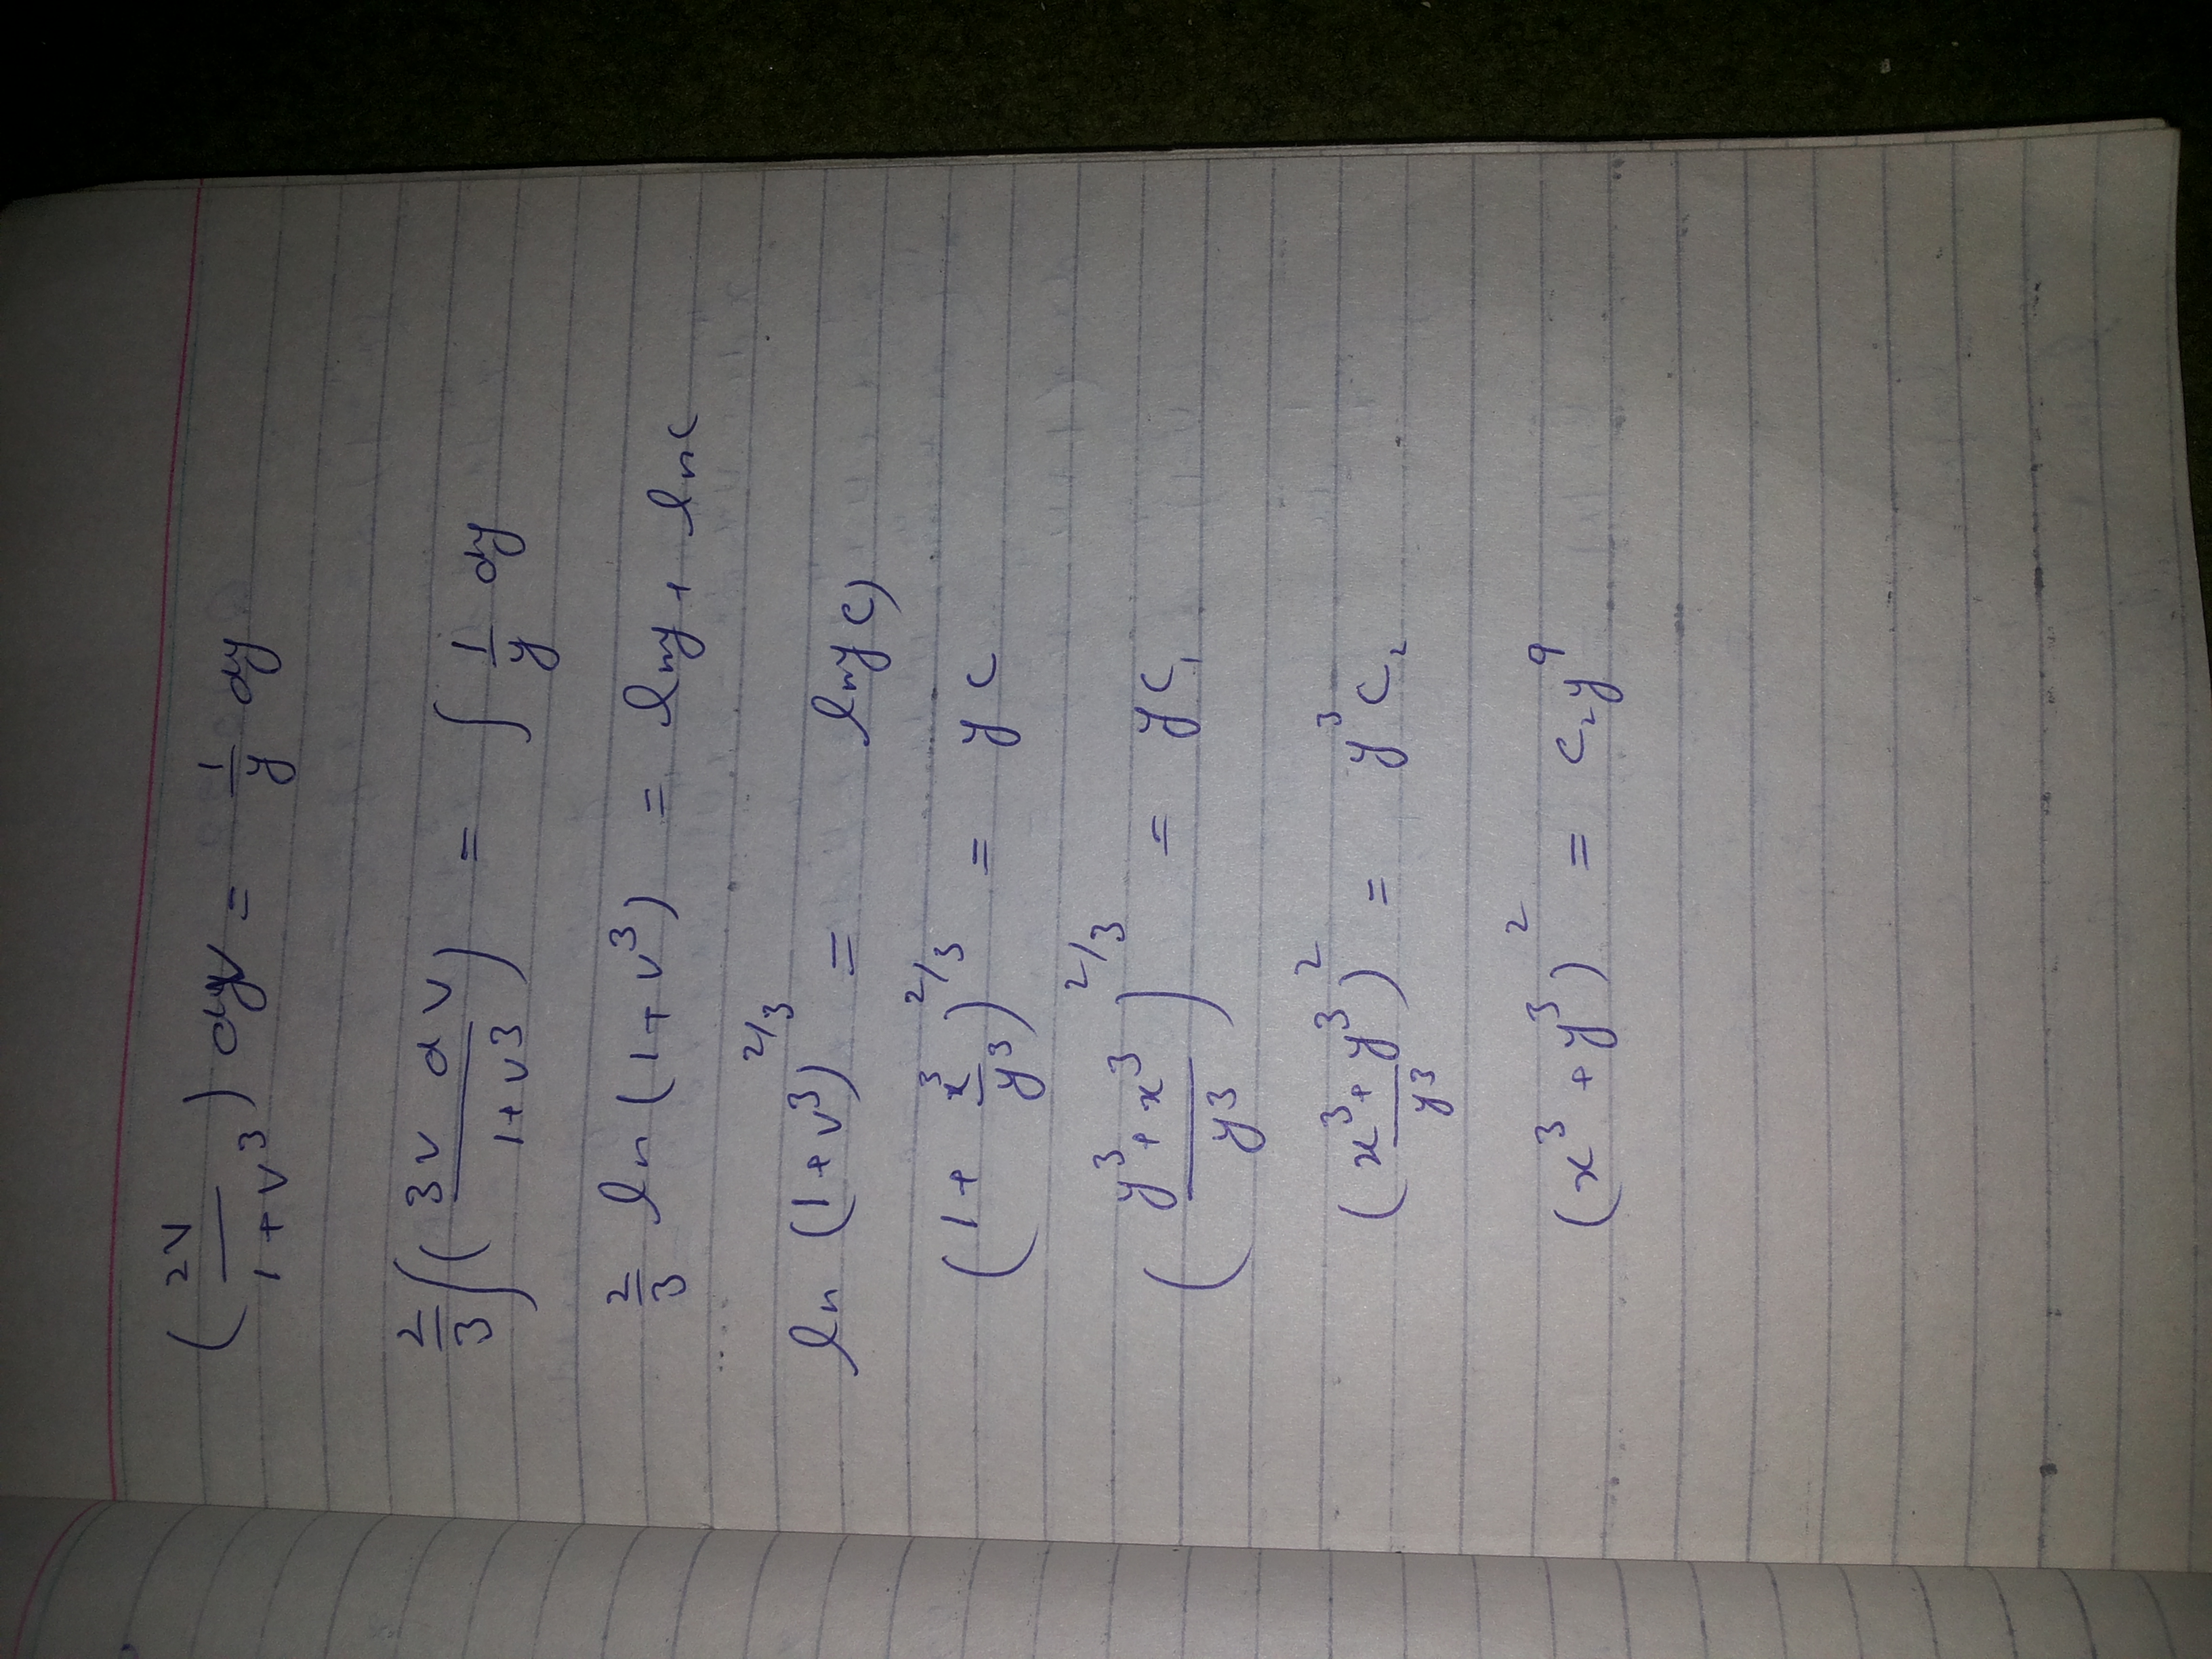 (2v / 1+v³) dv = 1/y dy
2/3 ∫ (3v dv / 1+v3) = ∫ 1/y dy
2/3 ln (1+v³) = lny + lnc
ln (1+v³)^2/3 = lny c)
(1 + x³/y³)^2/3 = y c
(y³+x³ / y3)^2/3 = y c₁
(x³+y³ / y3)² = y³ c₂
(x³+y³)² = c₂y⁹